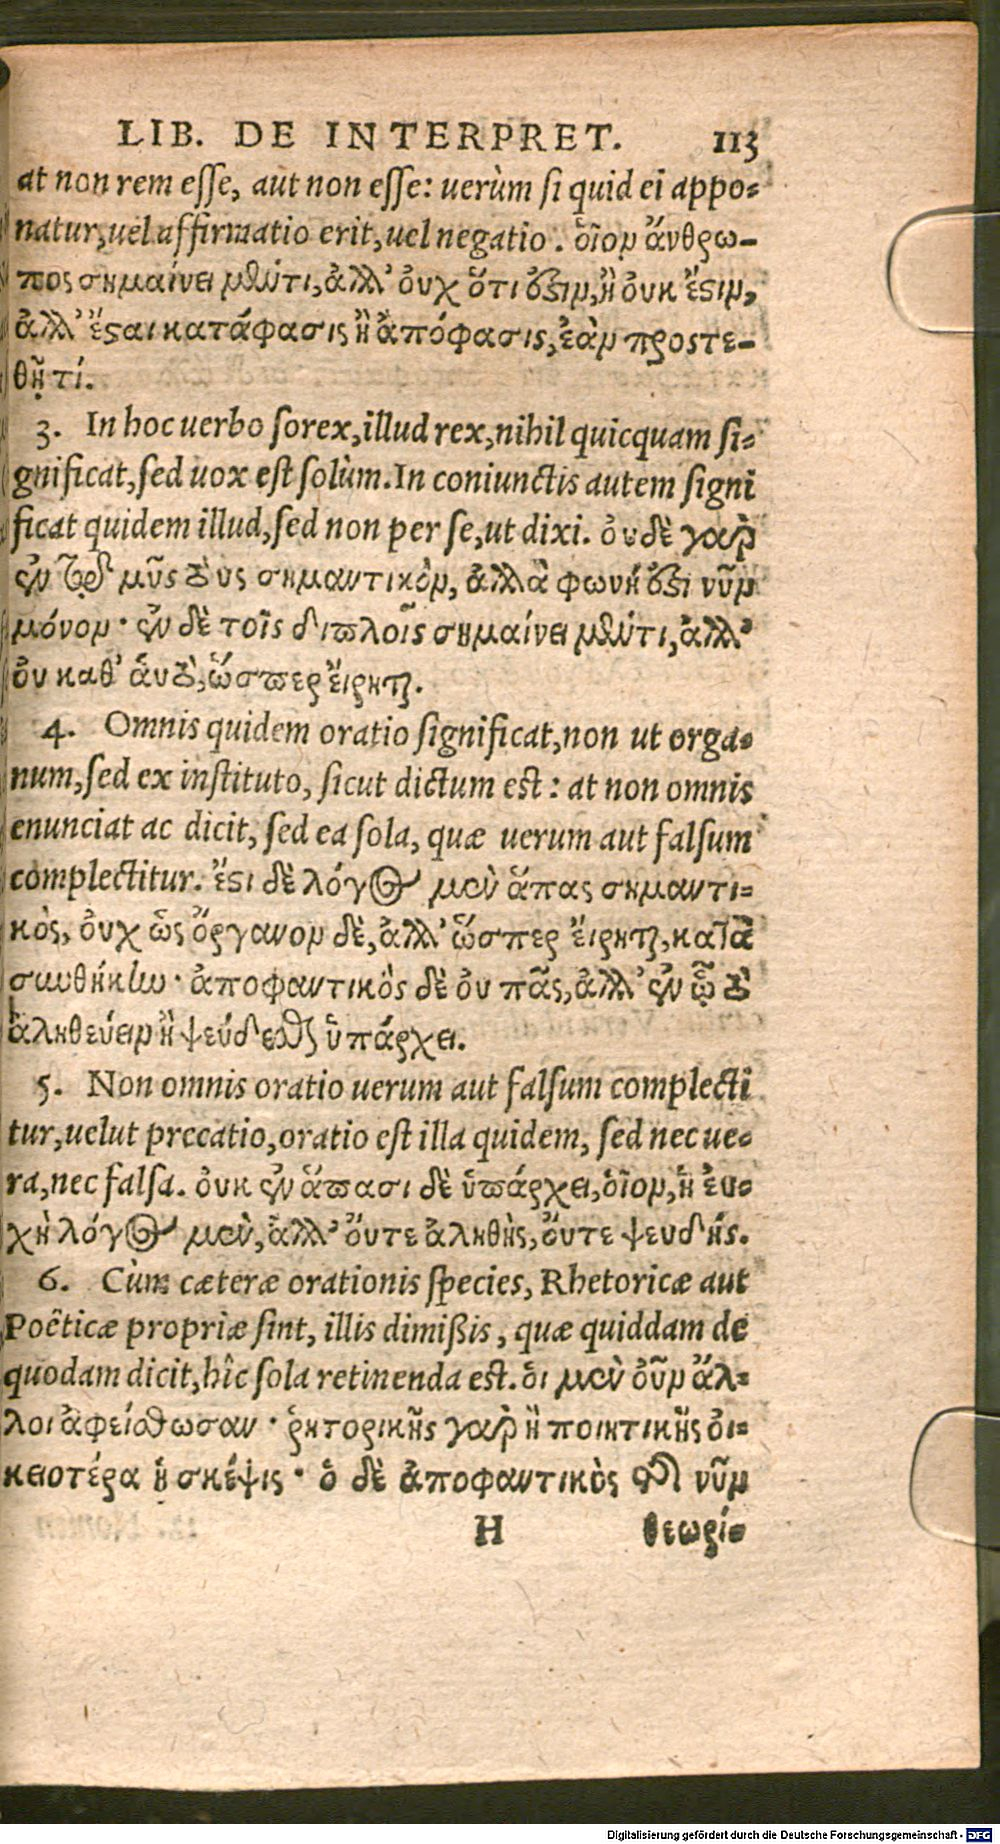 LIB. DE INTERPRET. 113
at non rem esse, aut non esse: uerùm si quid ei appo-
natur, uel affirmatio erit, uel negatio. ὁῖον ἄνθρω-
πος σημαίνει μὲν τι, ἀλλ' ὀυχ ὅτι ἐστιν, ἢ ὀυκ ἔστιν,
ἀλλ' ἔσται κατάφασις ἢ ἀπόφασις, ἐὰν προστε-
θῇ τί.
3. In hoc uerbo sorex, illud rex, nihil quicquam si-
gnificat, sed uox est solùm. In coniunctis autem signi
ficat quidem illud, sed non per se, ut dixi. ὀυδὲ γὰρ
ἐν τῷ μῦς τὸ υς σημαντικὸν, ἀλλὰ φωνή ἐστι νῦν
μόνον· ἐν δὲ τοῖς διπλοῖς σημαίνει μὲν τι, ἀλλ'
ὀυ καθ' ἁυτὸ, ὥσπερ ἔιρηται.
4. Omnis quidem oratio significat, non ut orga-
num, sed ex instituto, sicut dictum est: at non omnis
enunciat ac dicit, sed ea sola, quæ uerum aut falsum
complectitur. ἔστι δὲ λόγος μὲν ἅπας σημαντι-
κὸς, ὀυχ ὡς ὄργανον δὲ, ἀλλ' ὥσπερ ἔιρηται, κατὰ
συνθήκην· ἀποφαντικὸς δὲ ὀυ πᾶς, ἀλλ' ἐν ᾧ τὸ
ἀληθεύειν ἢ ψεύδεσθαι ὑπάρχει.
5. Non omnis oratio uerum aut falsum complecti
tur, uelut precatio, oratio est illa quidem, sed nec ue-
ra, nec falsa. ὀυκ ἐν ἅπασι δὲ ὑπάρχει, ὁῖον, ἡ ἐυ-
χὴ λόγος μὲν, ἀλλ' ὄυτε ἀληθὴς, ὄυτε ψευδής.
6. Cùm cæteræ orationis species, Rhetoricæ aut
Poëticæ propriæ sint, illis dimißis, quæ quiddam de
quodam dicit, hîc sola retinenda est. ὁι μὲν ὀῦν ἄλ-
λοι ἀφείσθωσαν· ῥητορικῆς γὰρ ἢ ποιητικῆς ὀι-
κειοτέρα ἡ σκέψις· ὁ δὲ ἀποφαντικὸς τῆς νῦν
H θεωρί-
Digitalisierung gefördert durch die Deutsche Forschungsgemeinschaft - DFG